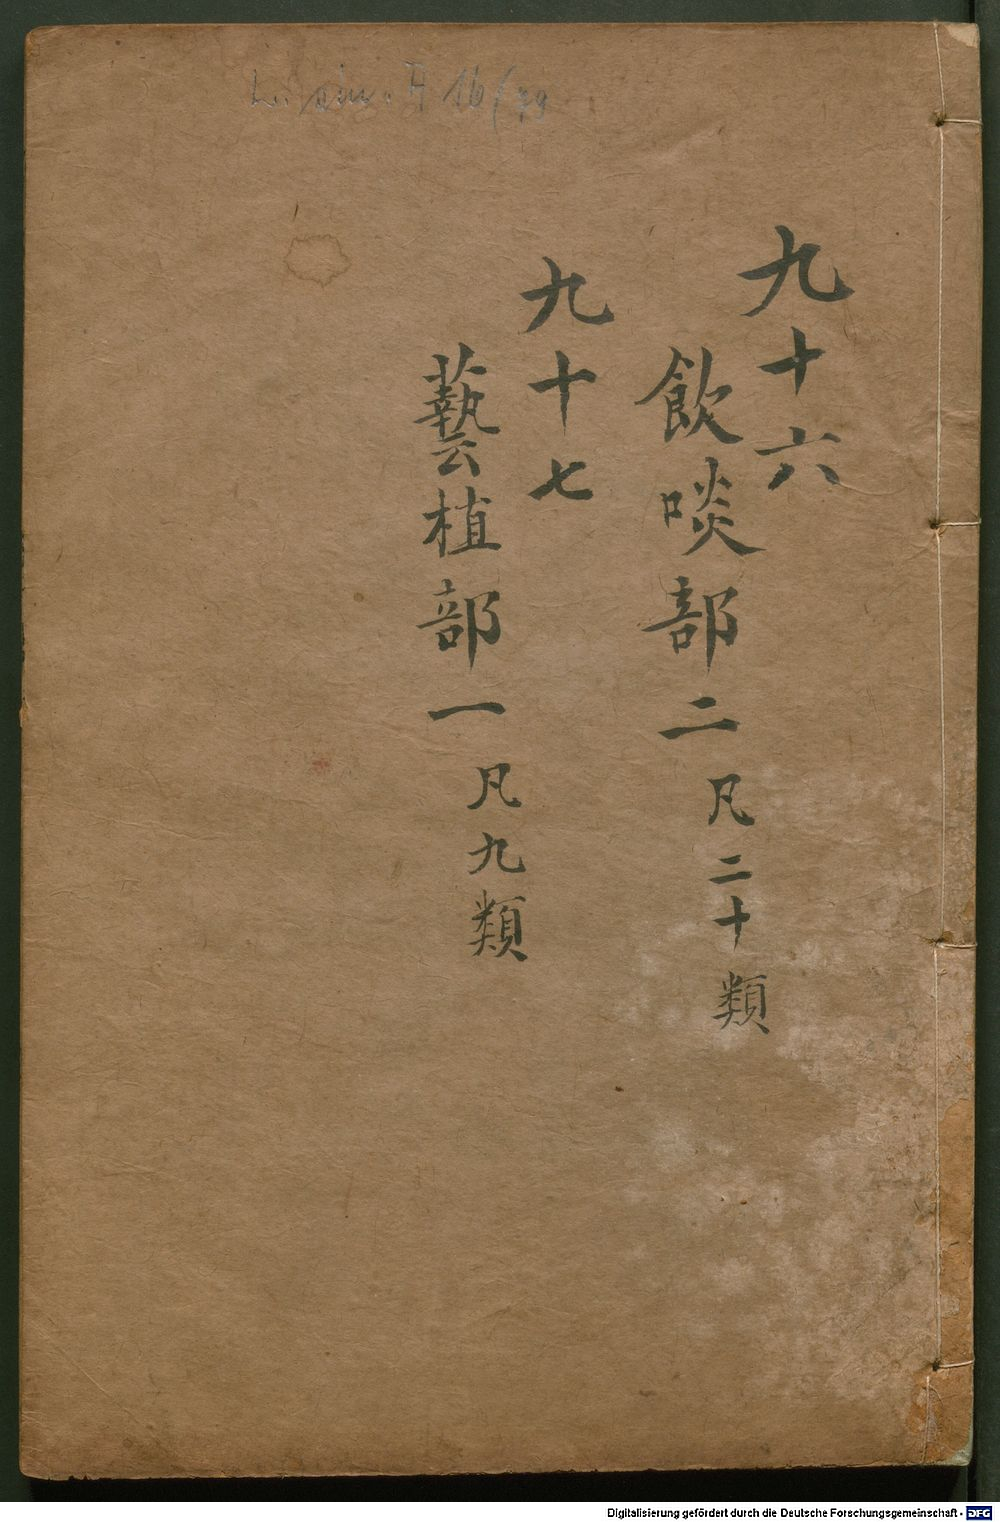 A 16/79
九十六
飲啖部二凡二十類
九十七
藝植部一凡九類
Digitalisierung gefördert durch die Deutsche Forschungsgemeinschaft - DFG